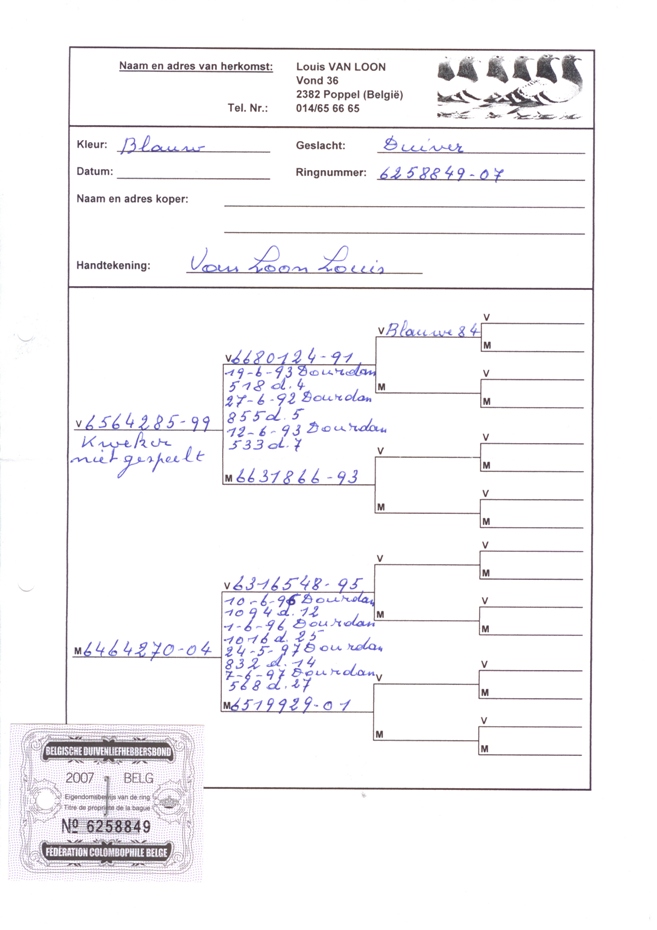 Naam en adres van herkomst: Louis VAN LOON
Vond 36
2382 Poppel (België)
Tel. Nr.: 014/65 66 65
Kleur: Blauw Geslacht: Duiver
Datum: Ringnummer: 6258849-07
Naam en adres koper:
Handtekening: Van Loon Louis
V 6564285-99
Kweker
niet gespeelt
V 6680124-91
19-6-93 Dourdan
518 d. 4
27-6-92 Dourdan
855 d. 5
12-6-93 Dourdan
533 d. 7
M 6631866-93
V Blauwe 84
M
V
M
V
M
V
M
V
M
V
M
M 6464270-04
V 6316548-95
10-6-96 Dourdan
1094 d. 12
1-6-96 Dourdan
1016 d. 25
24-5-97 Dourdan
832 d. 14
7-6-97 Dourdan
568 d. 27
M 6519929-01
V
M
V
M
V
M
V
M
V
M
V
M
BELGISCHE DUIVENLIEFHEBBERSBOND
2007 BELG
Eigendomsbewijs van de ring
Titre de propriété de la bague
Nº 6258849
FÉDÉRATION COLOMBOPHILE BELGE